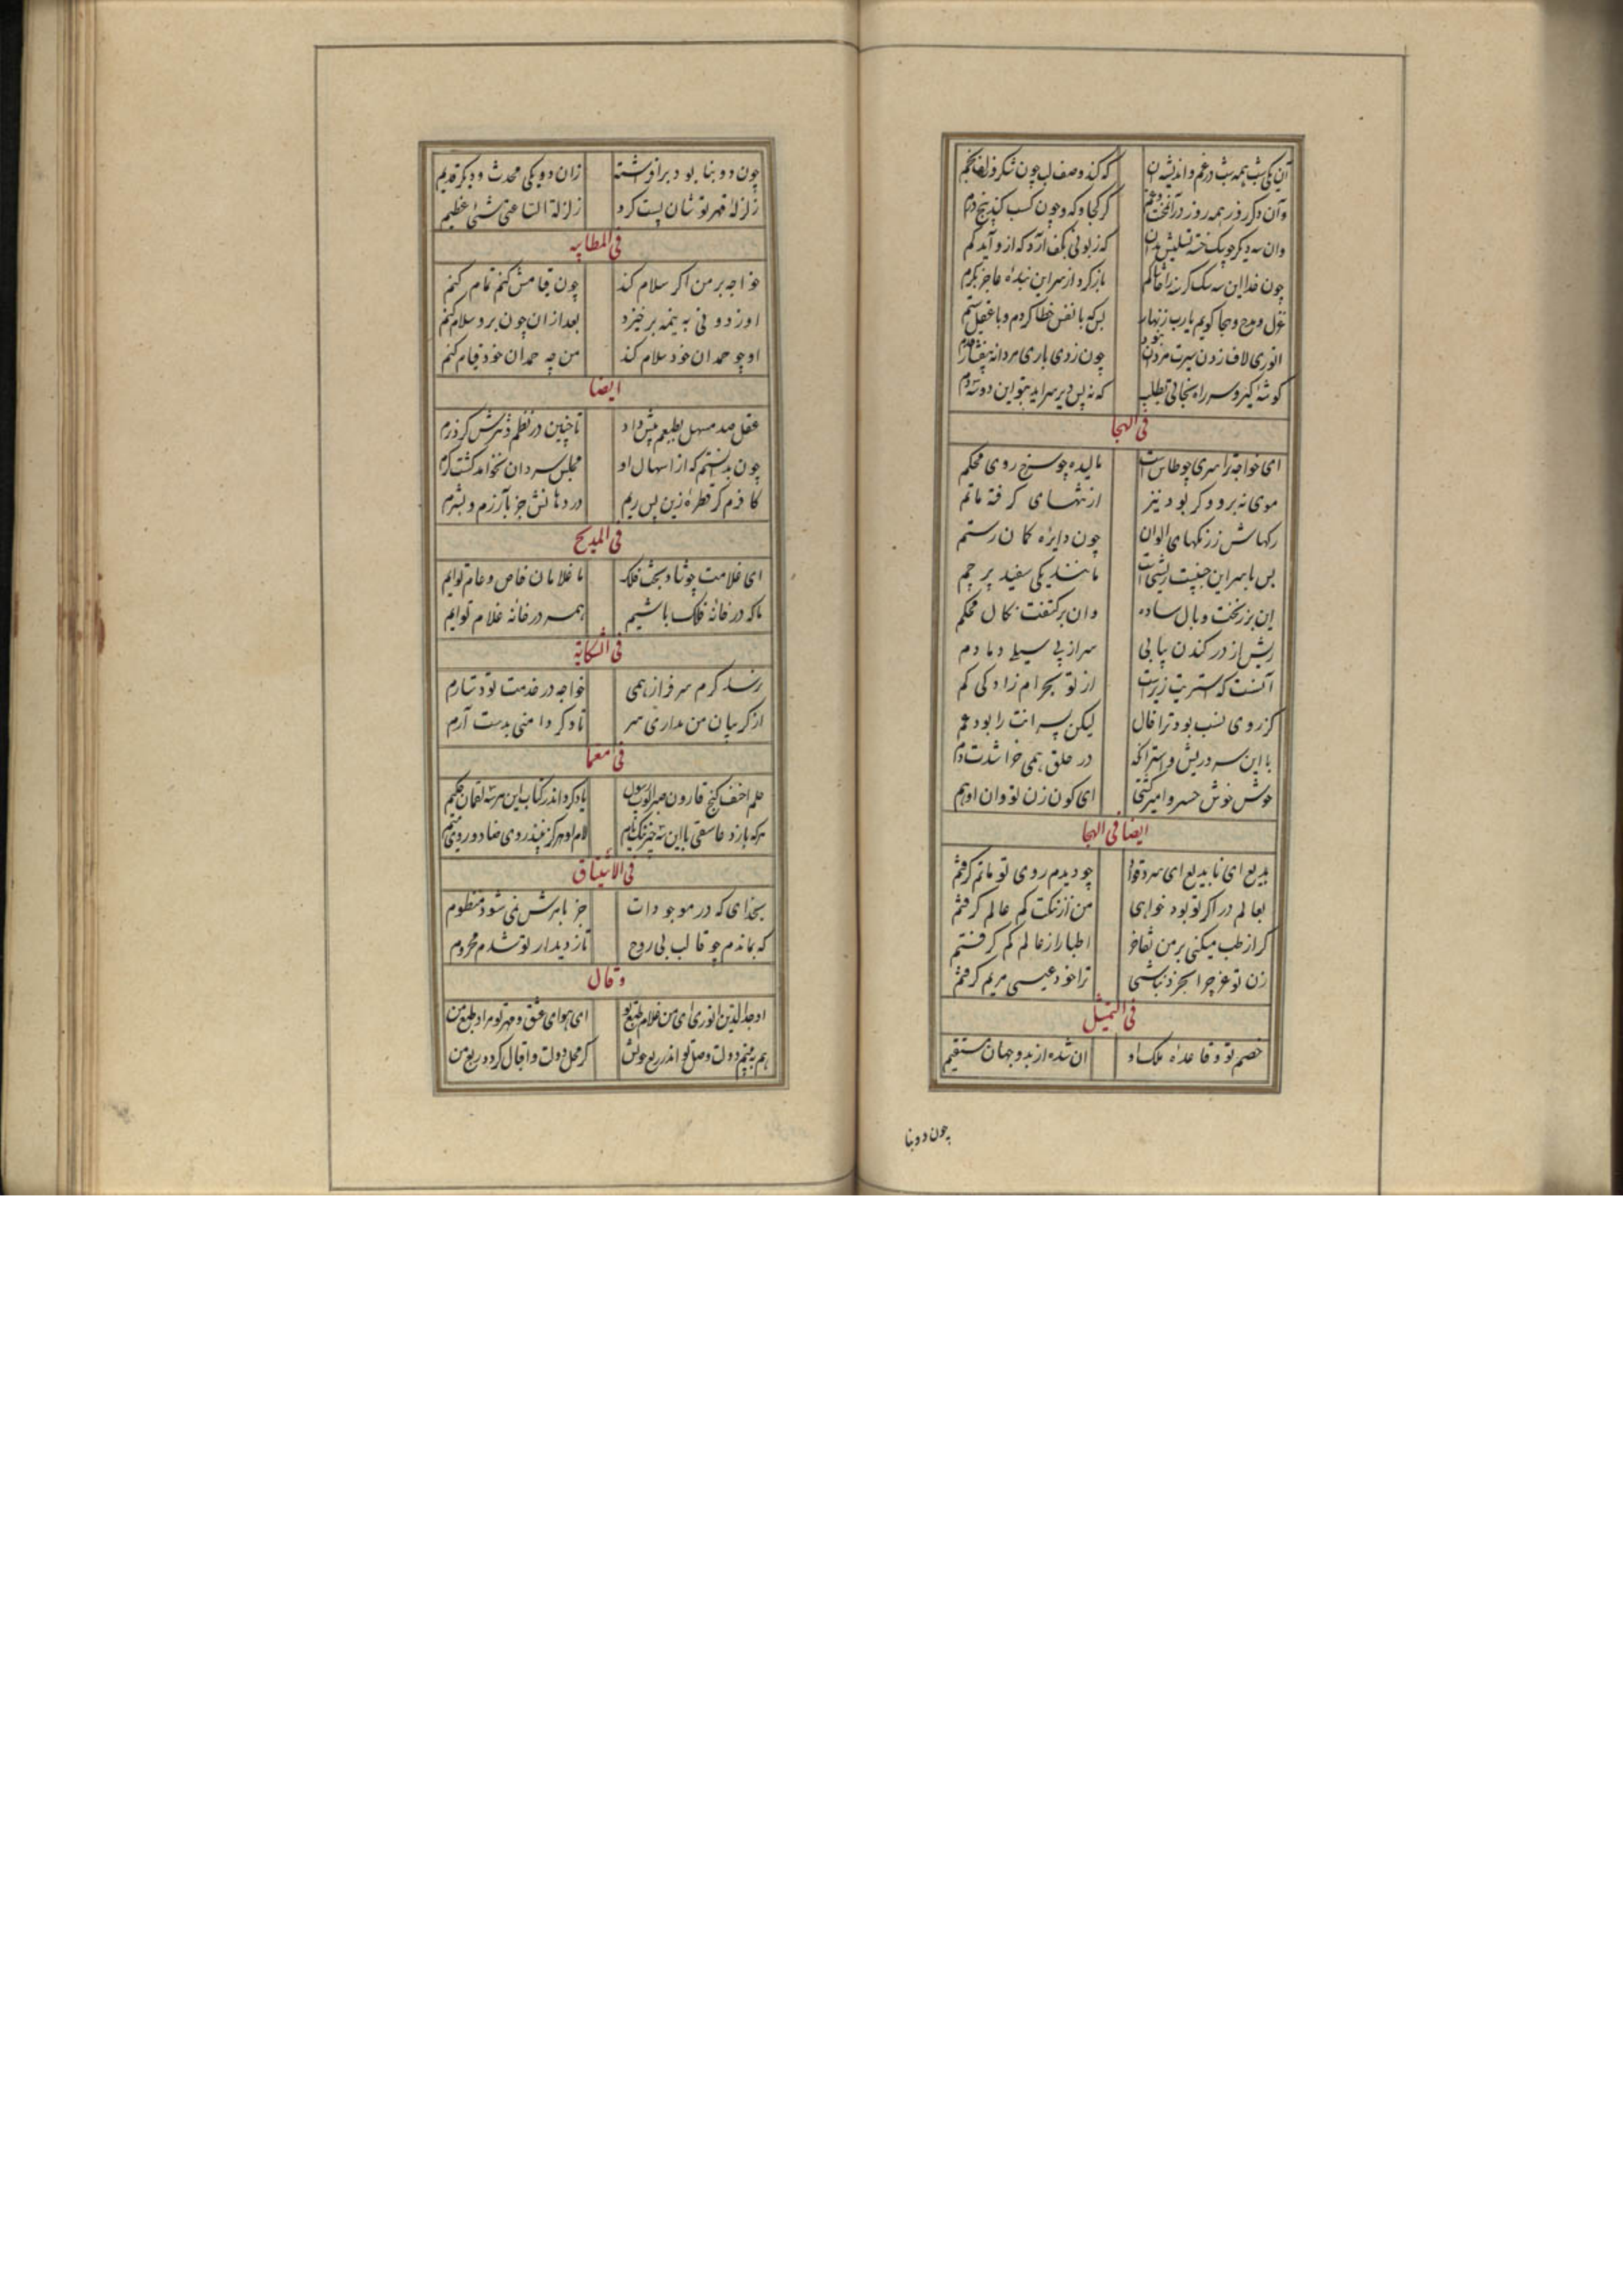 آن یکی شب همه شب در غم و اندیشه آن که کند وصف لب چون شکر و زلف بخم
وآن دگر روز همه روز در آن محنت و غم کز کجا وز که و چون کسب کند پنج درم
وان سه دیگر چو سگ خسته تسلیش بدان که زبونی بکف آرد که ازو آید کم
چون خدا این سه سگ گرسنه را حاشاکم باز کرد از سر این بنده عاجز بکرم
غزل و مدح و هجا گویم یارب زنهار بس که با نفس خطا کردم و با عقل ستم
انوری لاف زدن سیرت مردان نبود چون زدی باری مردانه بیفشار قدم
گوشه گیر و سر راه نجاتی بطلب که نه بس دیر سر آید بتو این دو سه دم
فی الهجا
ای خواجه ترا سری چو طاس است مالیده چو سرخ روی محکم
موی نه برو و گر بود نیز از نتهای گرفته ماتم
رگهاش ز رنگهای الوان چون دایره کمان رستم
بس با سر این چنینت ریشی است مانند یکی سفید پرچم
این بر زنخت وبال ساده وان بر کتفت نکال محکم
ریش از در کندن پیاپی سر از پی سیلی دمادم
آنست که استریت زیرست از تو بحرامزادگی کم
کز روی نسب بود ترا خال لیکن پسرانت را بود عم
با این سر و ریش و استر آنکه در حلق همی خراشدت دم
خوش خوش خسر و امیر گشتی ای کون زن تو وان او هم
ایضا فی الهجا
بدیع ای نا بدیع ای سرد قوال چو دیدم روی تو ماتم گرفتم
بعالم در اگر تو بود خواهی من از ننگت کم عالم گرفتم
گر از طب میکنی بر من تفاخر اطبا را ز عالم کم گرفتم
زن تو غر چرا بجز نباشی ترا خود عیسی مریم گرفتم
فی التمثل
خصم تو و قاعده ملک او ان شده از بدو جهان مستقیم
چون دو بنا
چون دو بنا بود بر افراشته زان دو یکی محدث و دیگر قدیم
زلزله قهر تو شان پست کرد زلزلة الساعة شیئ عظیم
فی المطایبه
خواجه بر من اگر سلام کند چون قیامش کنم تمام کنم
او ز دونی به نیمه برخیزد بعد از ان چون برو سلام کنم
او چو حمدان خود سلام کند من چه حمدان خود قیام کنم
ایضا
عقل صد مسهل بطبعم پیش داد تا چنین در نظم و نثرش کرد نرم
چون بدانستم که از اسهال او مجلس سردان نخواهد گشت گرم
کافرم گر قطره زین پس ریم در دهانش جز بآزرم و بشرم
فی المدیح
ای غلامت چو شاد بخت فلک ما غلامان خاص و عام توایم
ما که در خانه فلک باشیم همه در خانه غلام توایم
فی الشکایة
رشد کرم سرفراز همی خواجه در خدمت تو دستارم
از گریبان من مداری سر تا دگر دامنی بدست آرم
فی معما
حلم احنف گنج قارون صبر ایوب رسول یاد کرد اندر کتاب این هر سه لقمان حکیم
هر که بازد عاشقی با این سه چیز ای نیک نام لام او هرگز نبیند روی ضاد و روی میم
فی الاشتیاق
بخدای که در موجودات جز بامرش نمی شود منظوم
که بماندم چو قالب بی روح تا ز دیدار تو شدم محروم
وقال
اوحد الدین انوری ای من غلام طبع تو ای هوای عشق و مهر تو مراد طبع من
هم ببینم دولت وصل تو اندر ربع خویش گر محل دولت و اقبال گردد ربع من